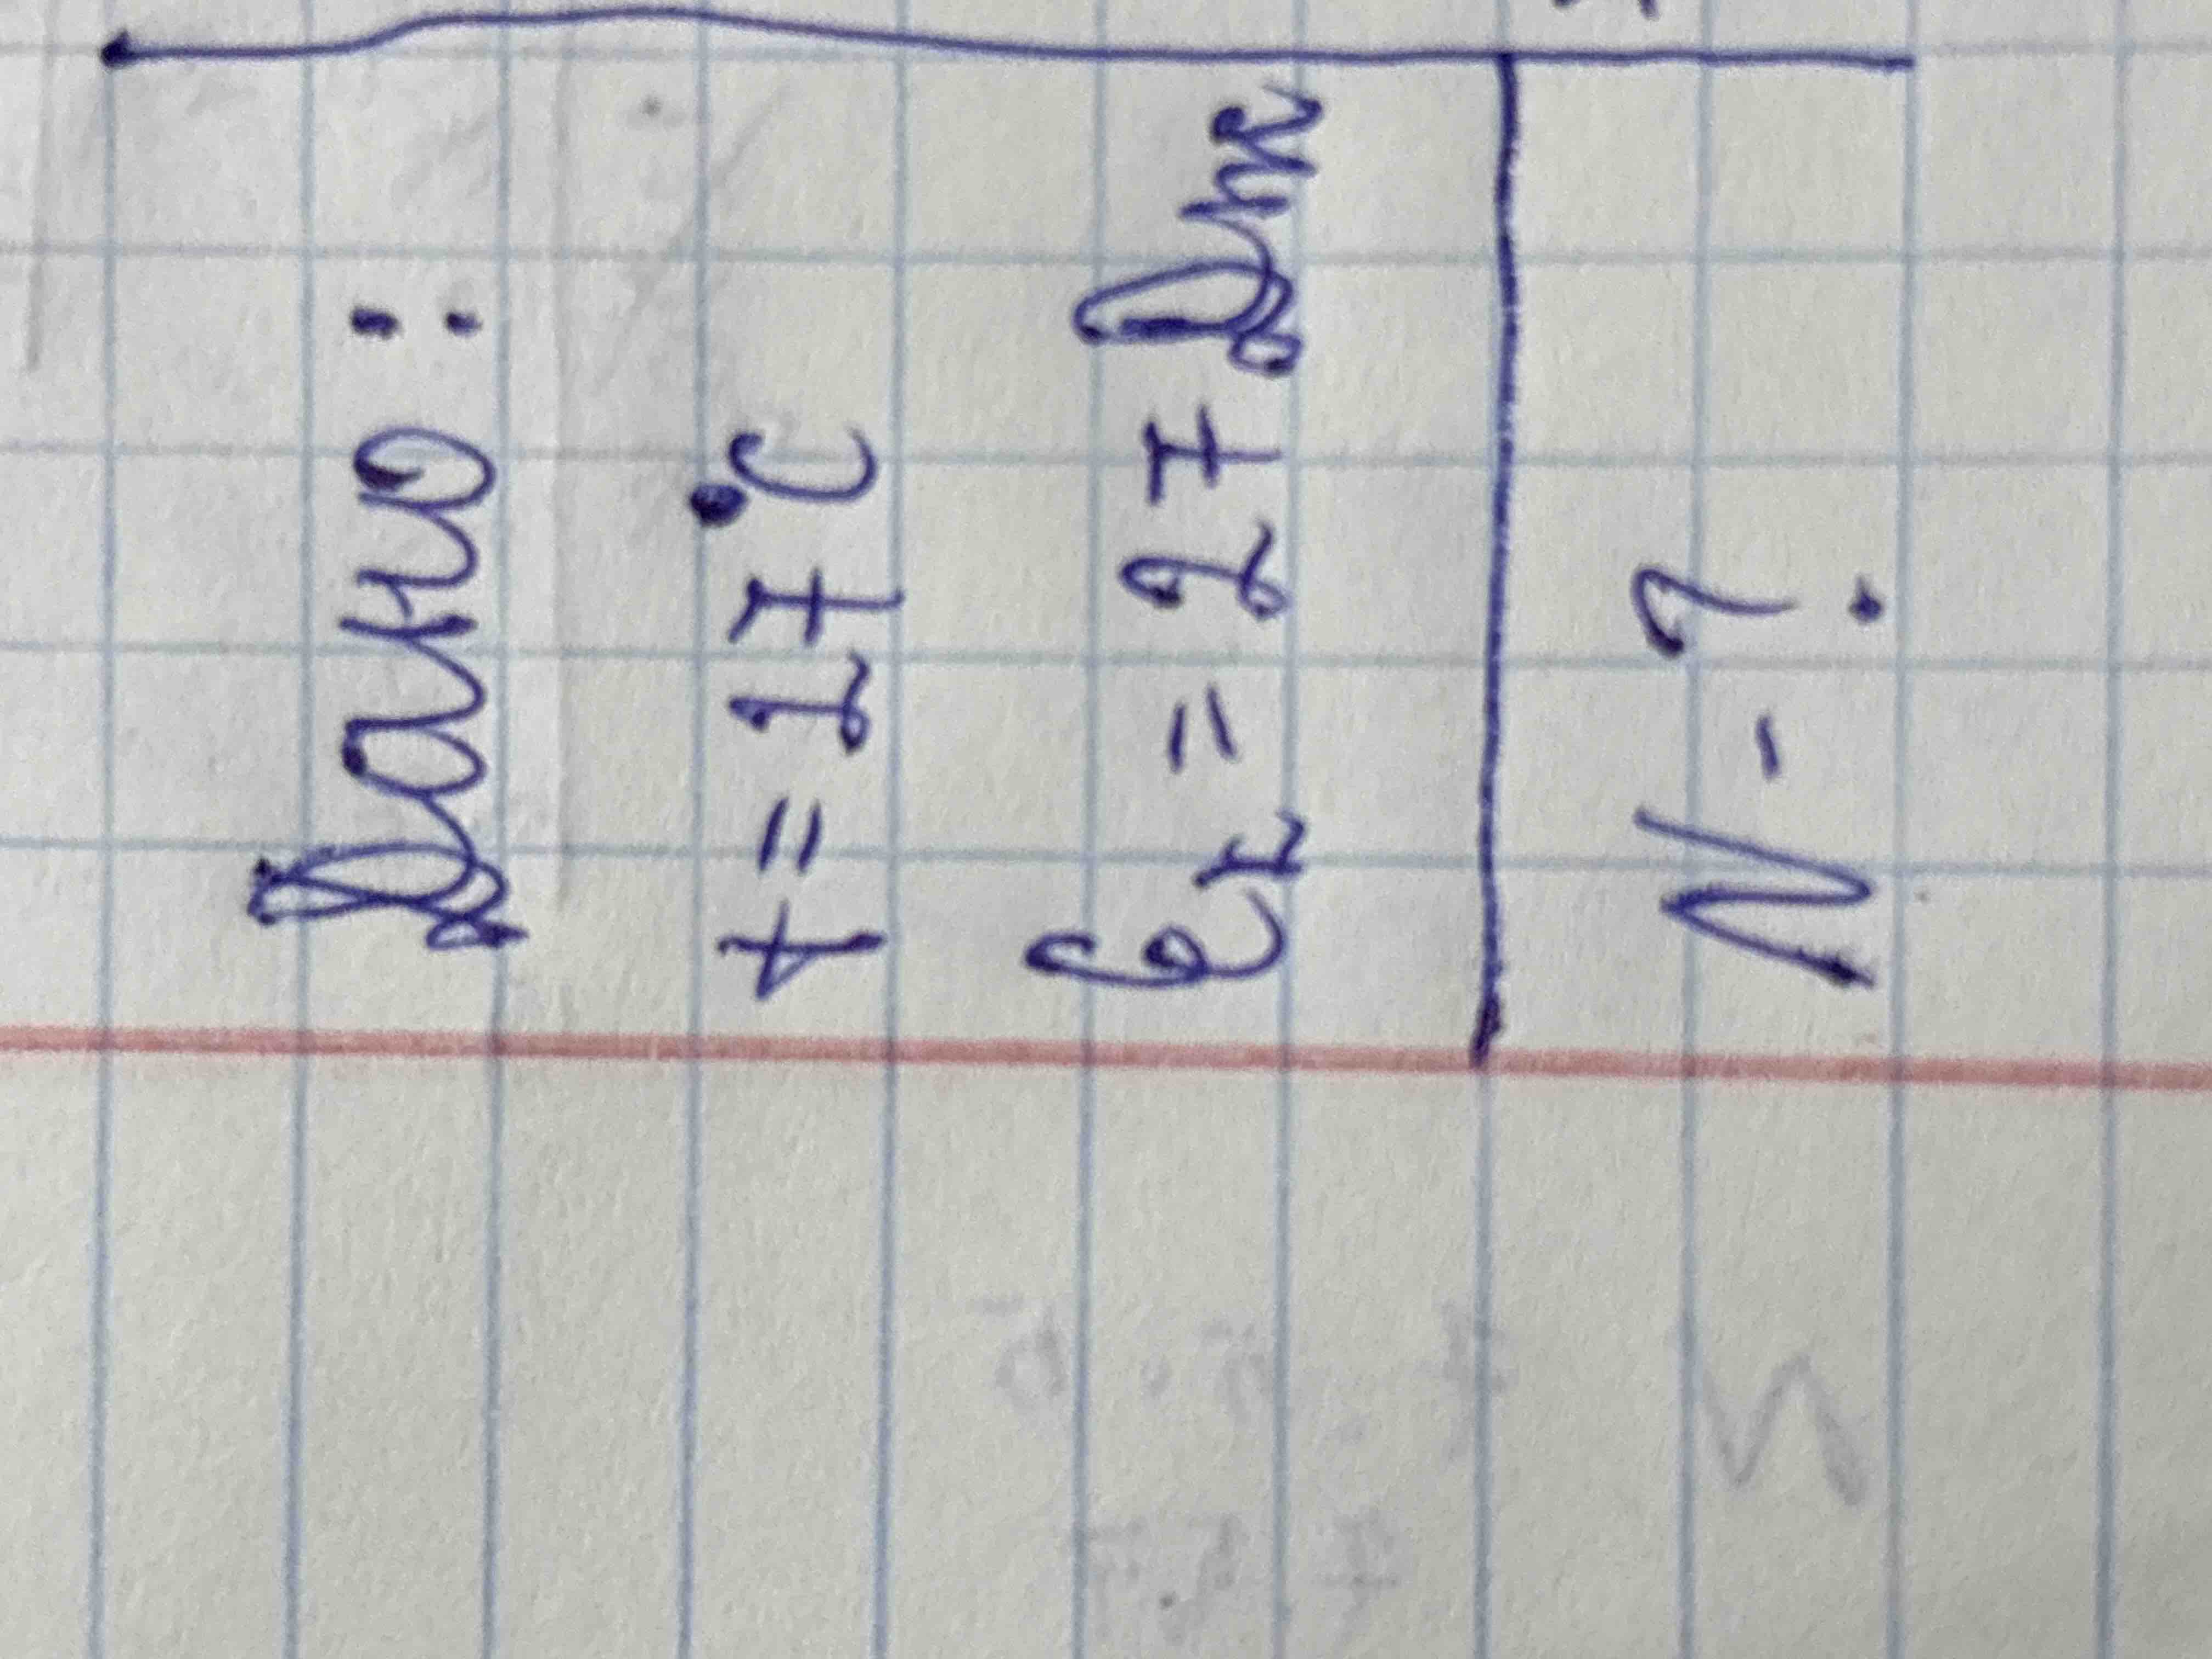 Дано:
t = 17°C
Eк = 27 Дж
N - ?